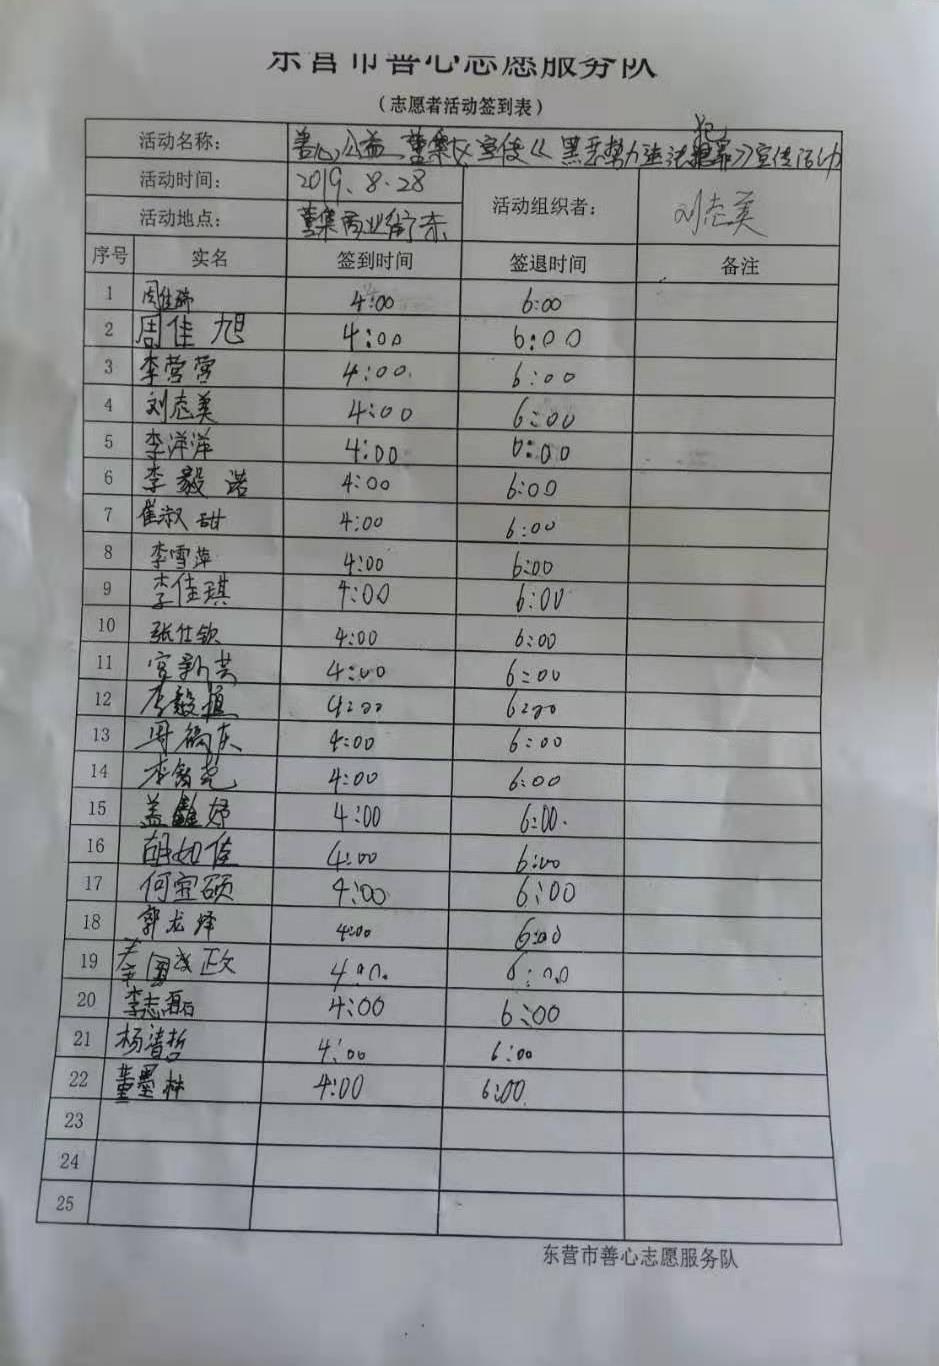 东营市善心志愿服务队
（志愿者活动签到表）
活动名称： 善心公益 董集区宣传《黑恶势力违法犯罪》宣传活动
活动时间： 2019.8.28 活动组织者： 刘志美
活动地点： 董集商业街东
序号 实名 签到时间 签退时间 备注
1 周佳瑞 4:00 6:00
2 周佳旭 4:00 6:00
3 李营营 4:00 6:00
4 刘志美 4:00 6:00
5 李洋洋 4:00 6:00
6 李毅诺 4:00 6:00
7 崔淑甜 4:00 6:00
8 李雪萍 4:00 6:00
9 李佳琪 4:00 6:00
10 张仕钦 4:00 6:00
11 宫新芸 4:00 6:00
12 李毅恒 4:00 6:00
13 4:00 6:00
14 4:00 6:00
15 盖鑫妤 4:00 6:00.
16 胡如佳 4:00 6:00
17 何宝硕 4:00 6:00
18 郭龙烽 4:00 6:00
19 4:00. 6:00
20 李志磊 4:00 6:00
21 杨清哲 4:00 6:00
22 董墨林 4:00 6:00
23
24
25
东营市善心志愿服务队